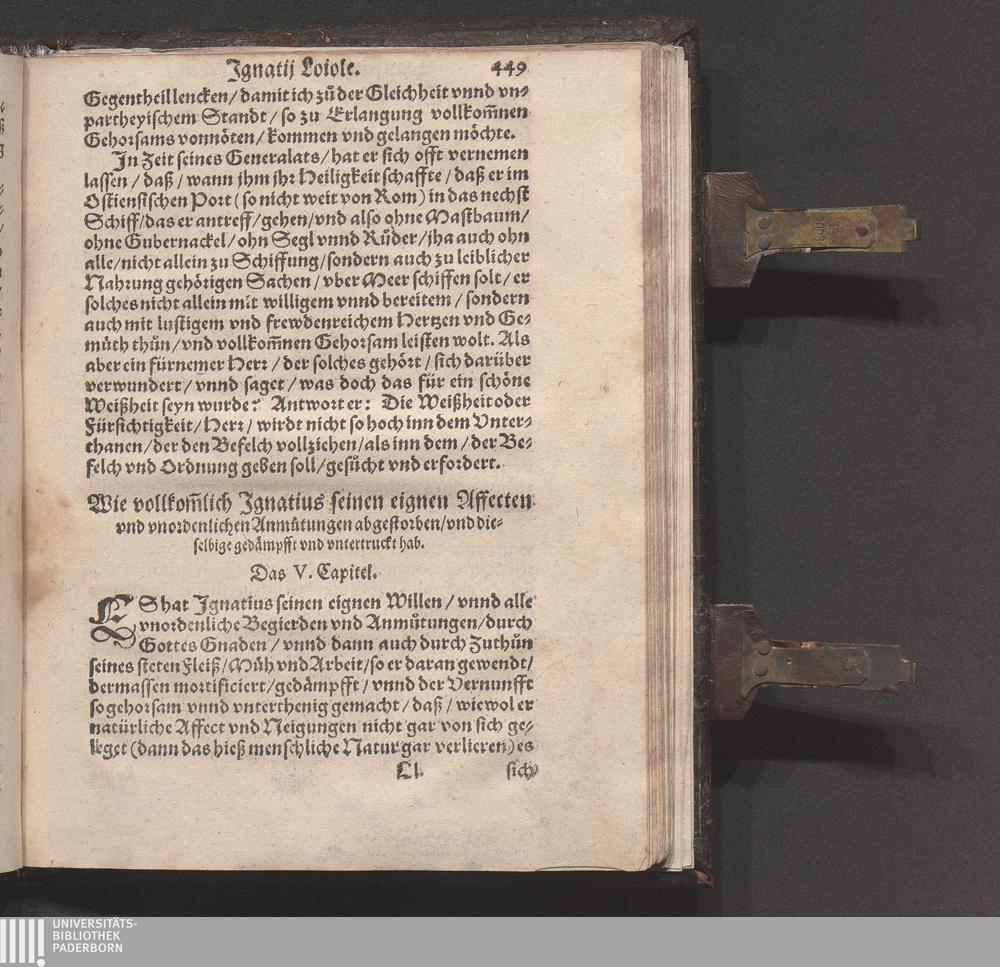 Ignatij Loiole. 449
Gegentheil lencken/ damit ich zů der Gleichheit vnnd vn-
partheyischem Standt/ so zu Erlangung vollkom̄nen
Gehorsams vonnöten/ kommen vnd gelangen möchte.
In Zeit seines Generalats/ hat er sich offt vernemen
lassen/ daß/ wann jhm jhr Heiligkeit schaffte/ daß er im
Ostiensischen Port (so nicht weit von Rom) in das nechst
Schiff/ das er antreff/ gehen/ vnd also ohne Mastbaum/
ohne Gubernackel/ ohn Segl vnnd Rüder/ jha auch ohn
alle/ nicht allein zu Schiffung/ sondern auch zu leiblicher
Nahrung gehörigen Sachen/ vber Meer schiffen solt/ er
solches nicht allein mit willigem vnnd bereitem/ sondern
auch mit lustigem vnd frewdenreichem Hertzen vnd Ge-
müth thůn/ vnd vollkom̄nen Gehorsam leisten wolt. Als
aber ein fürnemer Herr/ der solches gehört/ sich darüber
verwundert/ vnnd saget/ was doch das für ein schöne
Weißheit seyn wurde? Antwort er: Die Weißheit oder
Fürsichtigkeit/ Herr/ wirdt nicht so hoch inn dem Vnter-
thanen/ der den Befelch vollziehen/ als inn dem/ der Be-
felch vnd Ordnung geben soll/ gesůcht vnd erfordert.
Wie vollkom̄lich Ignatius seinen eignen Affecten
vnd vnordenlichen Anmůtungen abgestorben/ vnd die-
selbige gedämpfft vnd vntertruckt hab.
Das V. Capitel.
ES hat Ignatius seinen eignen Willen/ vnnd alle
vnordenliche Begierden vnd Anmůtungen/ durch
Gottes Gnaden/ vnnd dann auch durch Zuthůn
seines steten Fleiß/ Müh vnd Arbeit/ so er daran gewendt/
dermassen mortificiert/ gedämpfft/ vnnd der Vernunfft
so gehorsam vnnd vnterthenig gemacht/ daß/ wiewol er
natürliche Affect vnd Neigungen nicht gar von sich ge-
leget (dann das hieß menschliche Natur gar verlieren) es
Ll. sich
UNIVERSITÄTS-
BIBLIOTHEK
PADERBORN